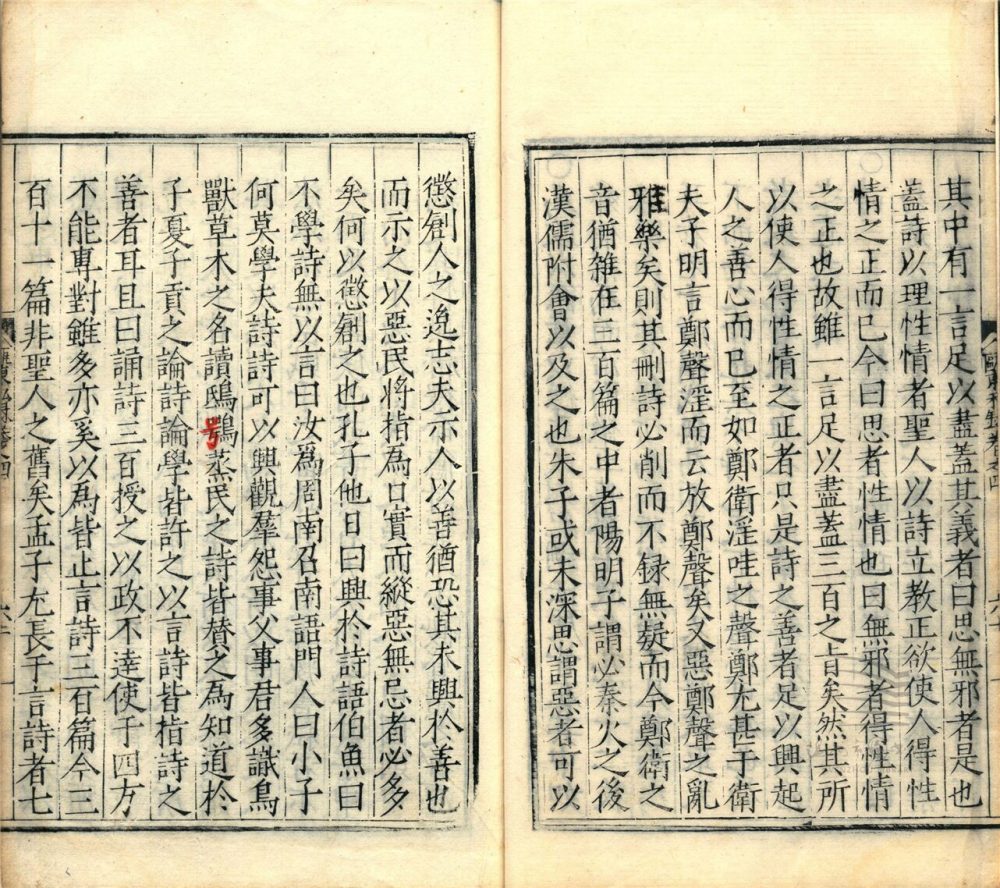 其中有一言足以盡蓋其義者曰思無邪者是也
蓋詩以理性情者聖人以詩立教正欲使人得性
情之正而已今曰思者性情也曰無邪者得性情
之正也故雖一言足以盡蓋三百之旨矣然其所
以使人得性情之正者只是詩之善者足以興起
人之善心而已至如鄭衛淫哇之聲鄭尤甚于衛
夫子明言鄭聲淫而云放鄭聲矣又惡鄭聲之亂
雅樂矣則其刪詩必削而不録無疑而今鄭衛之
音猶雜在三百篇之中者陽明子謂必秦火之後
漢儒附會以及之也朱子或未深思謂惡者可以
懲創人之逸志夫示人以善猶恐其未興於善也
而示之以惡民將指為口實而縱惡無忌者必多
矣何以懲創之也孔子他日曰興於詩語伯魚曰
不學詩無以言曰汝為周南召南語門人曰小子
何莫學夫詩詩可以興觀羣怨事父事君多識鳥
獸草木之名讀鴟鴞蒸民之詩皆賛之為知道於
号
子夏子貢之論詩論學皆許之以言詩皆指詩之
善者耳且曰誦詩三百授之以政不達使于四方
不能專對雖多亦奚以為皆止言詩三百篇今三
百十一篇非聖人之舊矣孟子尤長于言詩者七